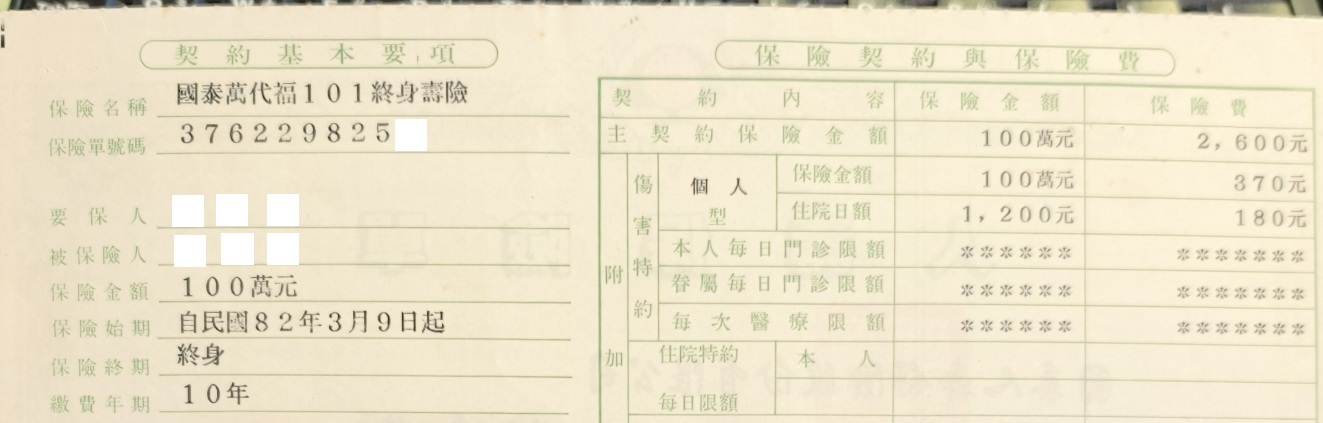 契約基本要項
保險名稱 國泰萬代福101終身壽險
保險單號碼 376229825
要保人
被保險人
保險金額 100萬元
保險始期 自民國82年3月9日起
保險終期 終身
繳費年期 10年
保險契約與保險費
契約內容 保險金額 保險費
主契約保險金額 100萬元 2,600元
附加
傷害特約
個人型
保險金額 100萬元 370元
住院日額 1,200元 180元
本人每日門診限額 ****** *******
眷屬每日門診限額 ****** *******
每次醫療限額 ****** *******
住院特約 本人
每日限額